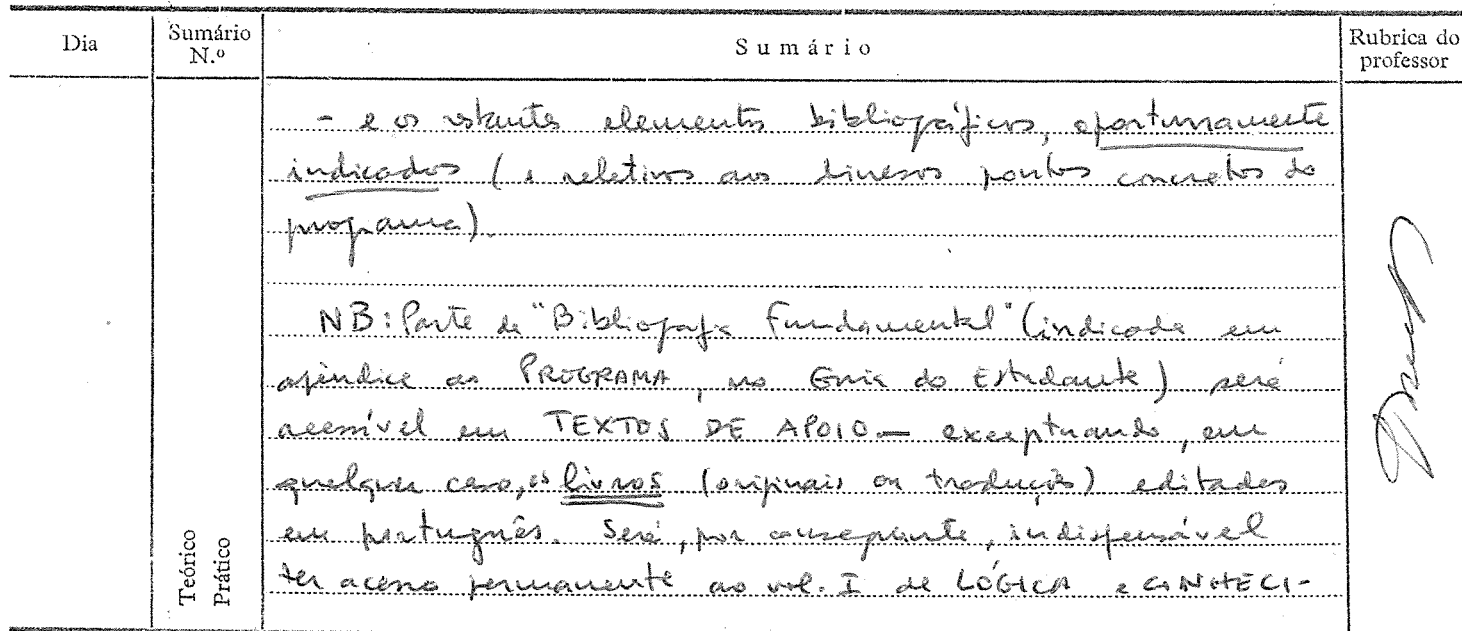 Dia
Sumário
N.º
Sumário
Rubrica do
professor
- e os restantes elementos bibliográficos, oportunamente
indicados (e relativos aos diversos pontos concretos do
programa).
NB: Parte da "Bibliografia Fundamental" (indicada em
apêndice ao PROGRAMA, no Guia do Estudante) será
acessível em TEXTOS DE APOIO — exceptuando, em
qualquer caso, os livros (originais ou traduções) editados
em português. Será, por conseguinte, indispensável
ter acesso permanente ao vol. I de LÓGICA e CONHECI-
Teórico
Prático